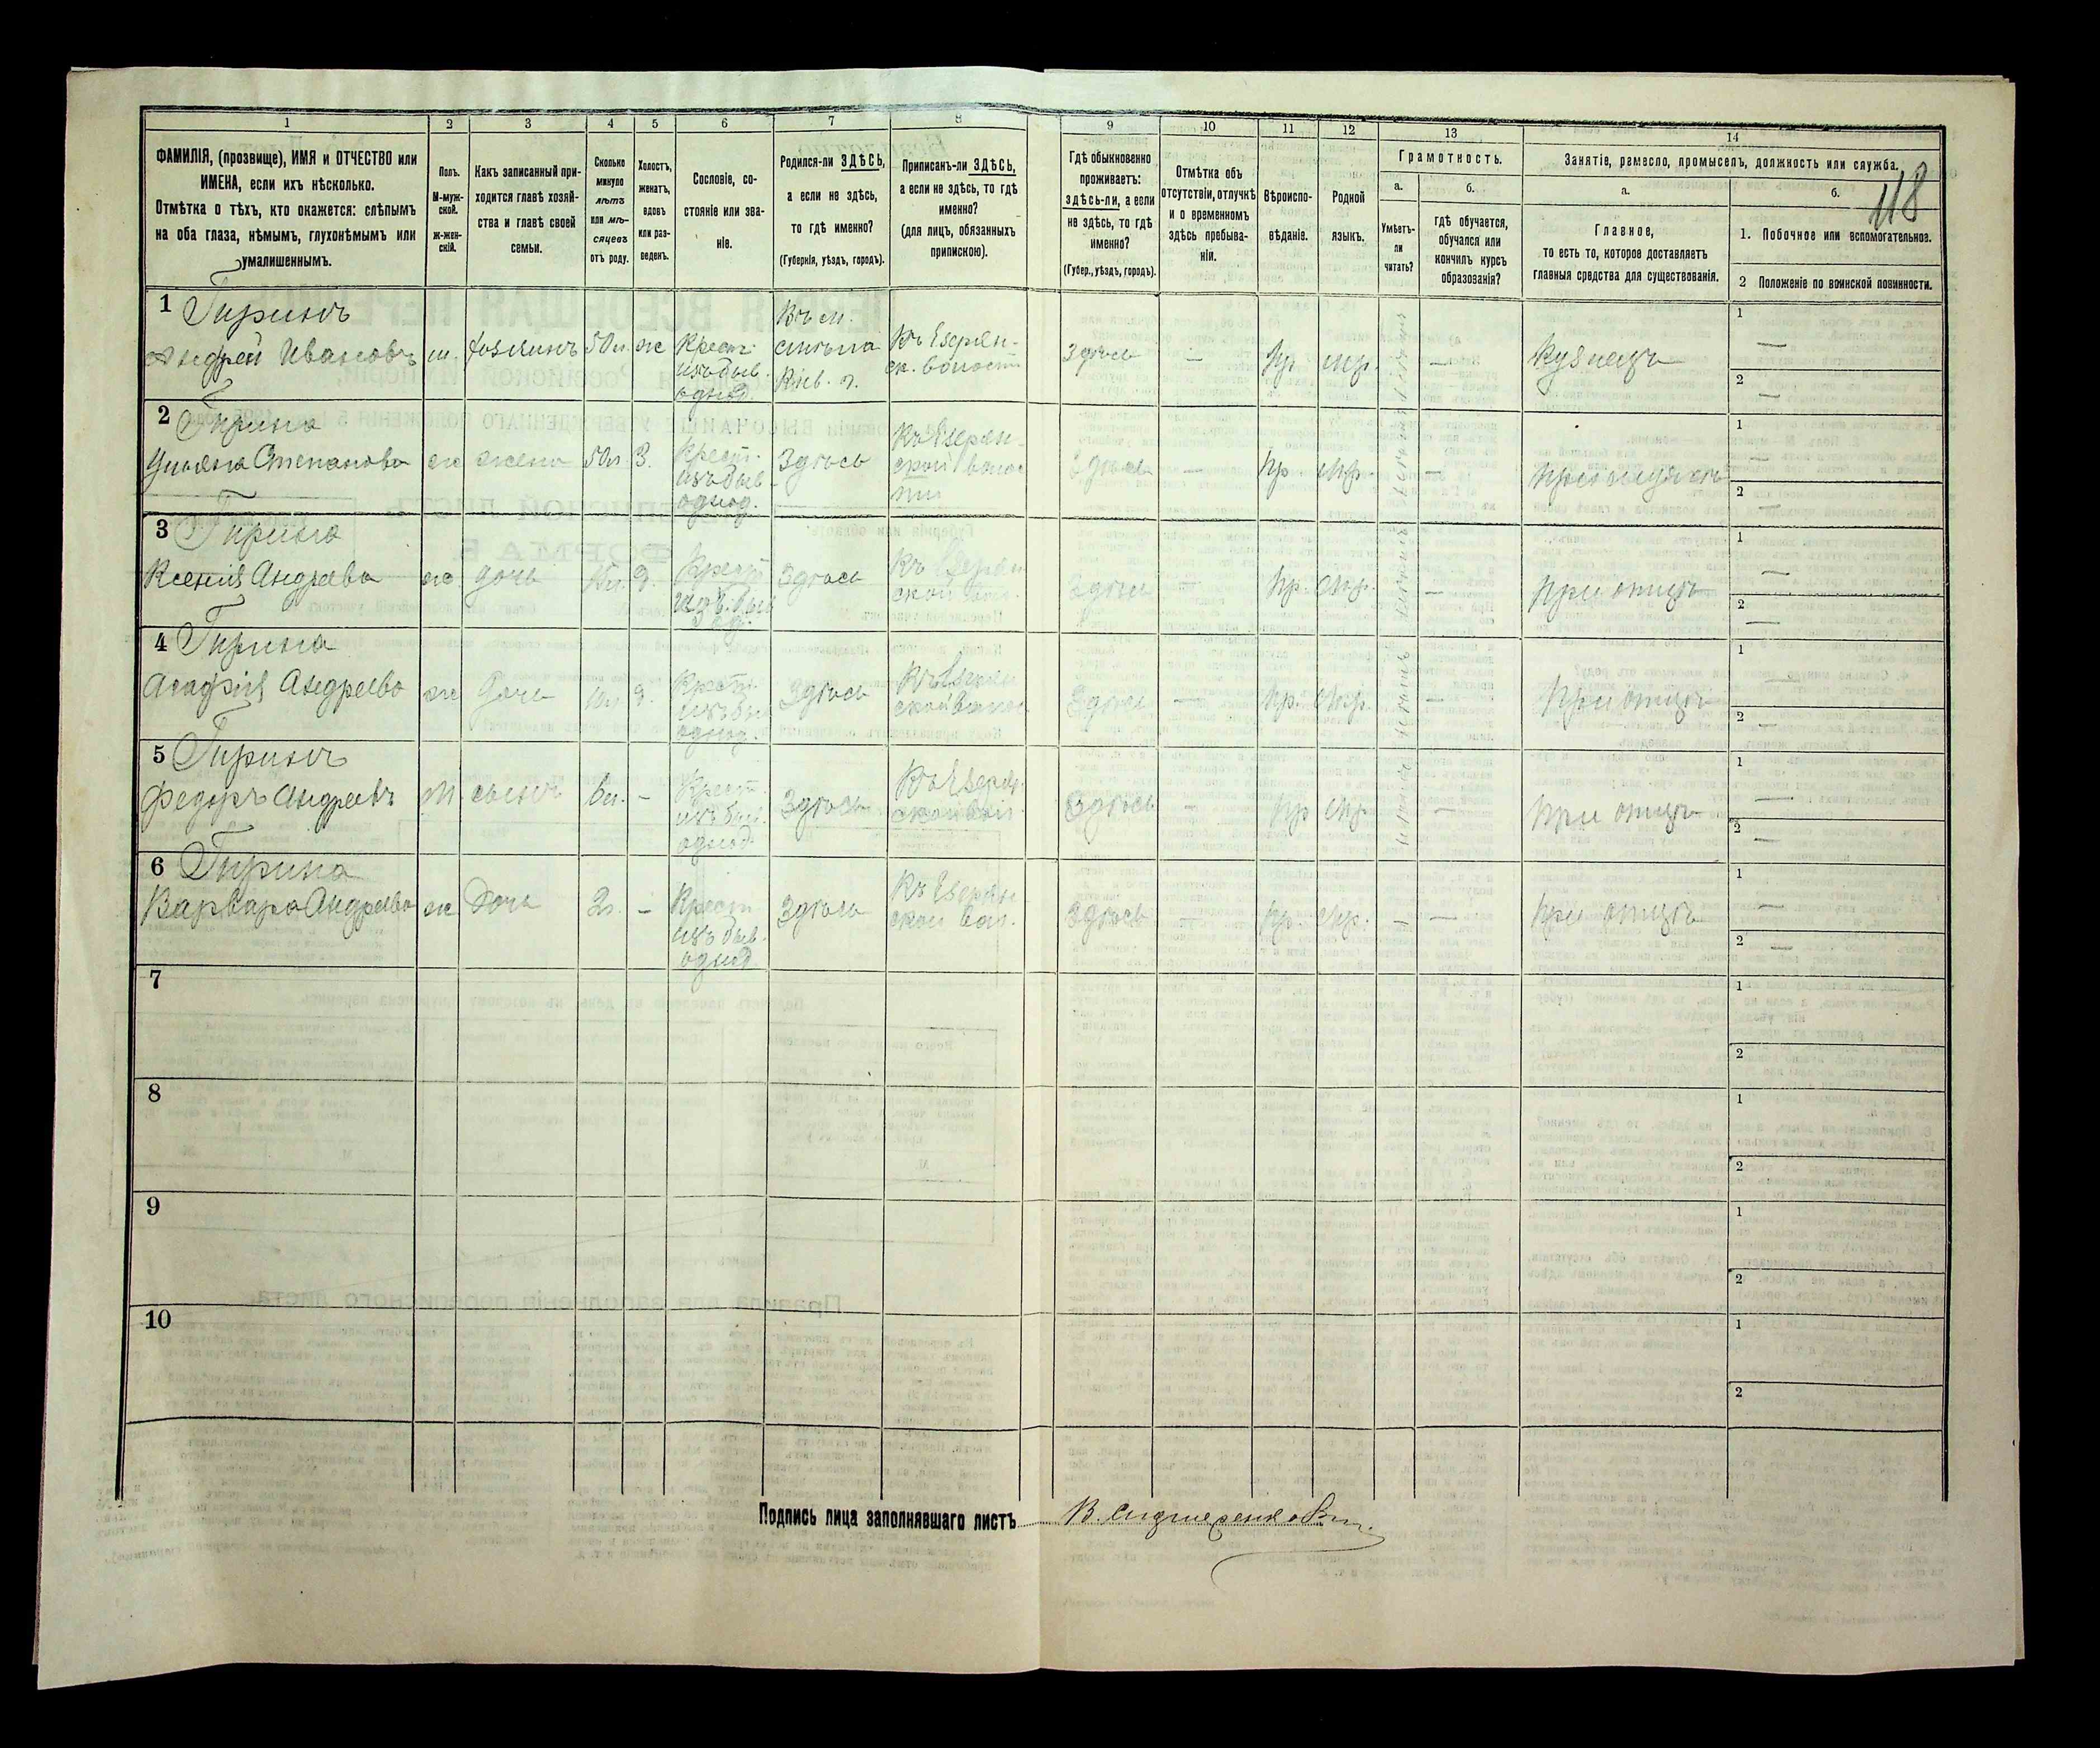 118
1 2 3 4 5 6 7 8 9 10 11 12 13 14
ФАМИЛІЯ, (прозвище), ИМЯ и ОТЧЕСТВО или
ИМЕНА, если ихъ нѣсколько.
Отмѣтка о тѣхъ, кто окажется: слѣпымъ
на оба глаза, нѣмымъ, глухонѣмымъ или
умалишеннымъ.
Полъ.
М-муж-
ской.
Ж-жен-
скій.
Какъ записанный при-
ходится главѣ хозяй-
ства и главѣ своей
семьи.
Сколько
минуло
лѣтъ
или мѣ-
сяцевъ
отъ роду.
Холостъ,
женатъ,
вдовъ
или раз-
веденъ.
Сословіе, со-
стояніе или зва-
ніе.
Родился-ли ЗДѢСЬ,
а если не здѣсь,
то гдѣ именно?
(Губернія, уѣздъ, городъ).
Приписанъ-ли ЗДѢСЬ,
а если не здѣсь, то гдѣ
именно?
(для лицъ, обязанныхъ
припискою).
Гдѣ обыкновенно
проживаетъ:
здѣсь-ли, а если
не здѣсь, то гдѣ
именно?
(Губер., уѣздъ, городъ).
Отмѣтка объ
отсутствіи, отлучкѣ
и о временномъ
здѣсь пребыва-
ніи.
Вѣроиспо-
вѣданіе.
Родной
языкъ.
Грамотность.
а.
Умѣетъ-
ли
читать?
б.
гдѣ обучается,
обучался или
кончилъ курсъ
образованія?
Занятіе, ремесло, промыселъ, должность или служба.
а.
Главное,
то есть то, которое доставляетъ
главныя средства для существованія.
б.
1. Побочное или вспомогательное.
2 Положеніе по воинской повинности.
1 Гиринъ
Андрей Ивановъ м. хозяинъ 50л. ж Крест.
изъ быв.
однод.
Здѣсь — пр. мр. — Кузнецъ
1 —
2 —
2 Гирина
Ульяна Степанова ж жена 50л З. Крест.
изъ быв.
однод.
Здѣсь
Здѣсь — пр. мр. — При мужѣ
1 —
2 —
3 Гирина
Ксенія Андреева ж дочь Здѣсь
Здѣсь — пр. мр. — При отцѣ
1 —
2 —
4 Гирина
Агафія Андреева ж Дочь Крест.
изъ быв.
однод.
Здѣсь
Здѣсь — пр. мр. — При отцѣ
1 —
2 —
5 Гиринъ
Федоръ Андреевъ М сынъ 6л. - Крест.
изъ быв.
однод.
Здѣсь
Здѣсь — пр мр. — При отцѣ
1 —
2 —
6 Гирина
Варвара Андреева ж Дочь 2л. - Крест.
изъ быв.
однод
Здѣсь
Здѣсь — пр. мр. — — При отцѣ
1 —
2 —
7
1
2
8
1
2
9
1
2
10
1
2
Подпись лица заполнявшаго листъ